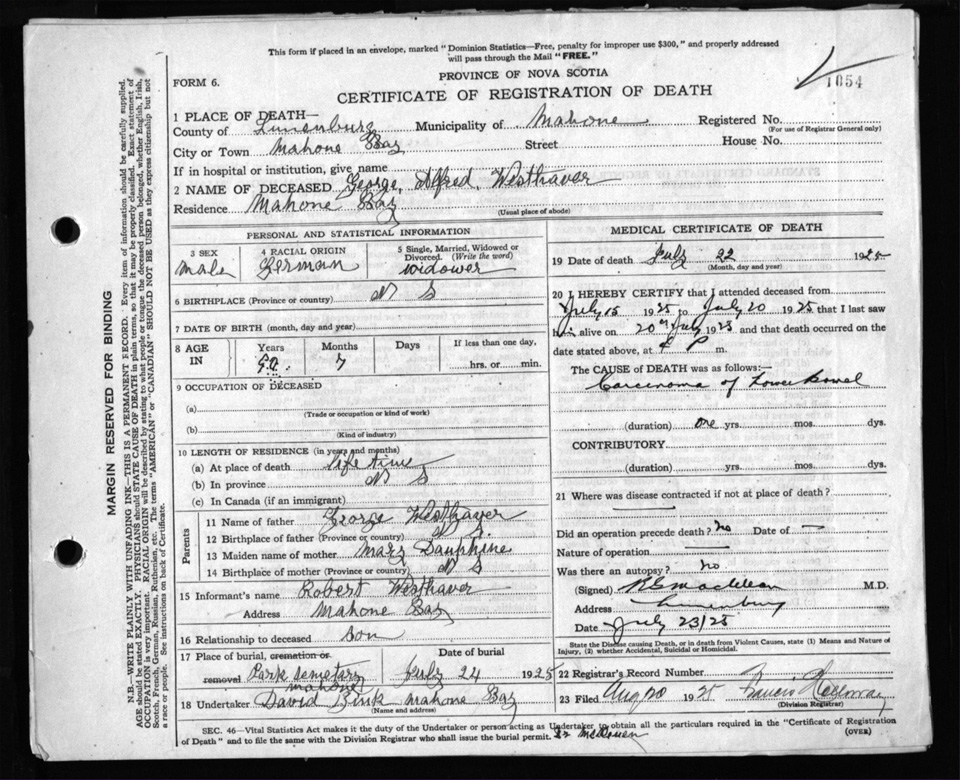 This form if placed in an envelope, marked "Dominion Statistics—Free, penalty for improper use $300," and properly addressed
will pass through the Mail "FREE."
PROVINCE OF NOVA SCOTIA
FORM 6.
1054
CERTIFICATE OF REGISTRATION OF DEATH
1 PLACE OF DEATH—
County of Lunenburg Municipality of Mahone Registered No.
(For use of Registrar General only)
City or Town Mahone Bay Street House No.
If in hospital or institution, give name
2 NAME OF DECEASED George, Alfred, Westhaver
Residence Mahone Bay
(Usual place of abode)
PERSONAL AND STATISTICAL INFORMATION
3 SEX 4 RACIAL ORIGIN 5 Single, Married, Widowed or
Divorced. (Write the word)
Male German widower
6 BIRTHPLACE (Province or country) N S
7 DATE OF BIRTH (month, day and year)
8 AGE IN Years Months Days If less than one day,
7 hrs. or min.
9 OCCUPATION OF DECEASED
(a)
(Trade or occupation or kind of work)
(b)
(Kind of industry)
10 LENGTH OF RESIDENCE (in years and months)
(a) At place of death life time
(b) In province N S
(c) In Canada (if an immigrant)
Parents
11 Name of father George Westhaver
12 Birthplace of father (Province or country) N S
13 Maiden name of mother Mary Dauphine
14 Birthplace of mother (Province or country) N S
15 Informant's name Robert Westhaver
Address Mahone Bay
16 Relationship to deceased Son
17 Place of burial, cremation or Date of burial
removal Park Semetary July 24 1925
mahone
18 Undertaker David Zink Mahone Bay
(Name and address)
MEDICAL CERTIFICATE OF DEATH
19 Date of death July 22 1925
(Month, day and year)
20 I HEREBY CERTIFY that I attended deceased from
July 15 1925 to July 20 1925 that I last saw
him alive on 20th July 1925 and that death occurred on the
date stated above, at P m.
The CAUSE of DEATH was as follows:—
Carcinoma of Lower bowel
(duration) one yrs. mos. dys.
CONTRIBUTORY
(duration) yrs. mos. dys.
21 Where was disease contracted if not at place of death?
Did an operation precede death? no Date of —
Nature of operation
Was there an autopsy? no
(Signed) M.D.
Address Lunenburg
Date July 23/25
State the Disease causing Death, or in death from Violent Causes, state (1) Means and Nature of
Injury, (2) whether Accidental, Suicidal or Homicidal.
22 Registrar's Record Number
23 Filed Aug 20 1925
(Division Registrar)
SEC. 46—Vital Statistics Act makes it the duty of the Undertaker or person acting as Undertaker to obtain all the particulars required in the "Certificate of Registration
of Death" and to file the same with the Division Registrar who shall issue the burial permit.
(OVER)
MARGIN RESERVED FOR BINDING
N.B.—WRITE PLAINLY WITH UNFADING INK—THIS IS A PERMANENT RECORD. Every item of information should be carefully supplied.
AGE should be stated EXACTLY. PHYSICIANS should STATE CAUSE OF DEATH in plain terms, so that it may be properly classified. Exact statement of
OCCUPATION is very important. RACIAL ORIGIN will be described by stating to what people or tongue the deceased person belonged, whether English, Irish,
Scotch, French, German, Russian, Ruthenian, etc. The terms "AMERICAN" or "CANADIAN" SHOULD NOT BE USED as they express citizenship but not
a race or people. See instructions on back of Certificate.